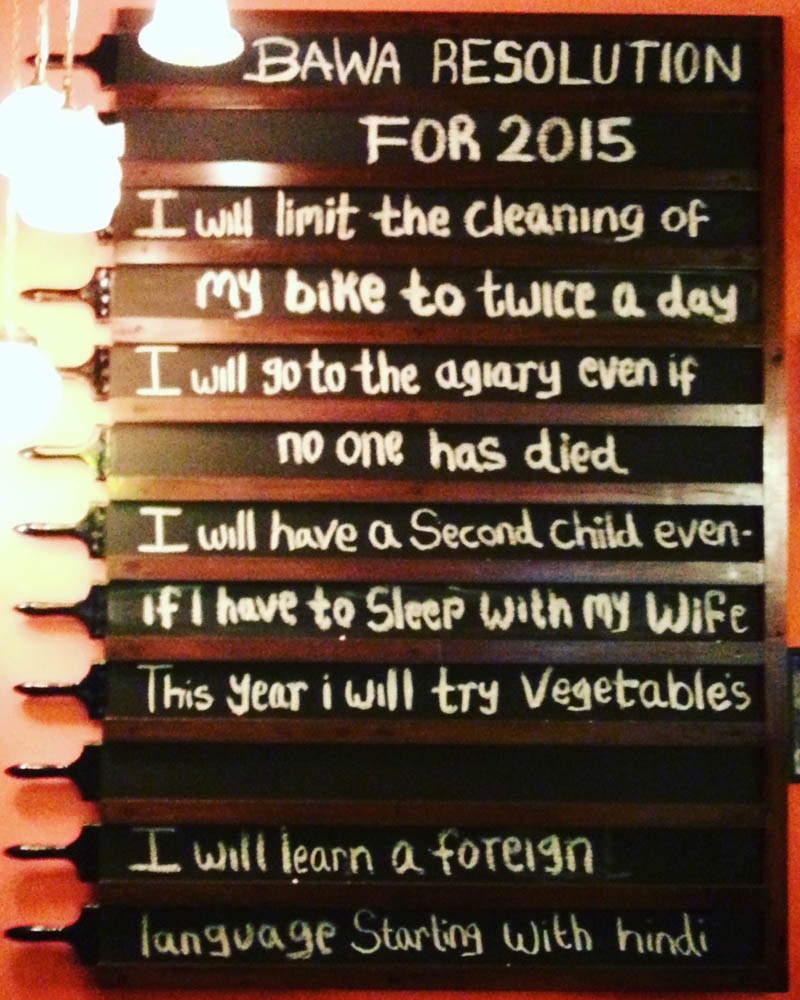 BAWA RESOLUTION
FOR 2015
I will limit the cleaning of
my bike to twice a day
I will go to the agiary even if
no one has died
I will have a Second child even-
if I have to Sleep with my Wife
This year i will try Vegetable's
I will learn a foreign
language Starting with hindi